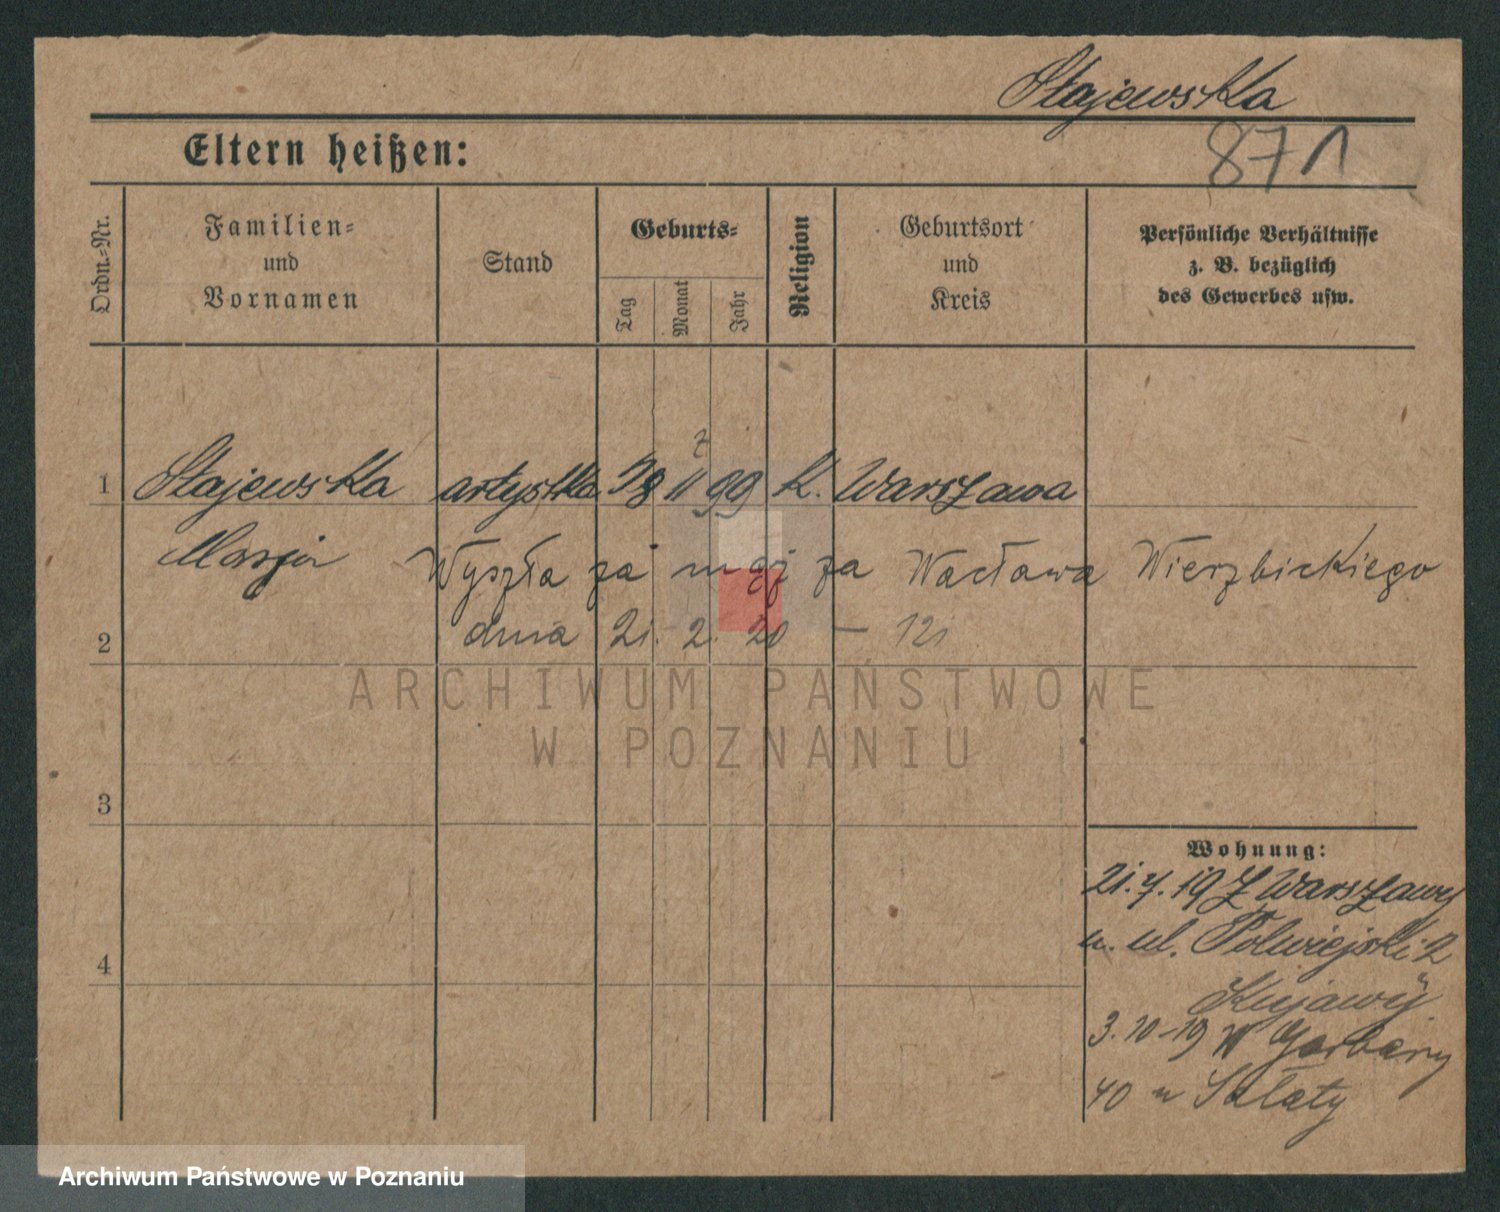 Stajewska
871
Eltern heißen:
Ordn.-Nr.
Familien- und Vornamen
Stand
Geburts-
Tag
Monat
Jahr
Religion
Geburtsort und Kreis
Persönliche Verhältnisse
z. B. bezüglich
des Gewerbes usw.
1 Stajewska artystka 28 11 99 K. Warszawa
Marja Wyszła za mąż za Wacława Wierzbickiego
2 dnia 21. 2. 20 – 121
3
4
Wohnung:
21.7.19 Z Warszawy
n. ul. Półwiejski 2
u Kujawy
3.10-19 W Garbary
40 u Sałaty
ARCHIWUM PAŃSTWOWE
W POZNANIU
Archiwum Państwowe w Poznaniu